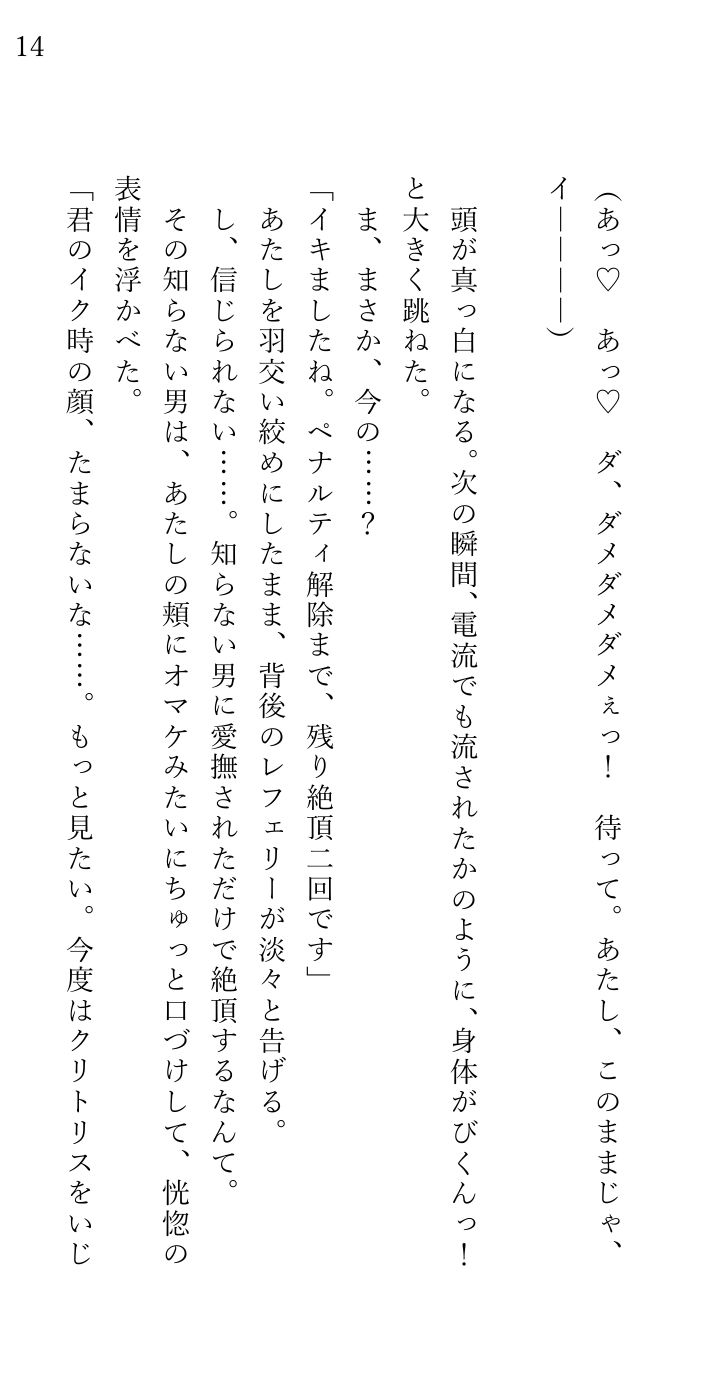 14
(あっ♡　あっ♡　ダ、ダメダメダメぇっ！　待って。あたし、このままじゃ、
イ――――)
　頭が真っ白になる。次の瞬間、電流でも流されたかのように、身体がびくんっ！
と大きく跳ねた。
　ま、まさか、今の……？
「イキましたね。ペナルティ解除まで、残り絶頂二回です」
　あたしを羽交い絞めにしたまま、背後のレフェリーが淡々と告げる。
　し、信じられない……。知らない男に愛撫されただけで絶頂するなんて。
　その知らない男は、あたしの頬にオマケみたいにちゅっと口づけして、恍惚の
表情を浮かべた。
「君のイク時の顔、たまらないな……。もっと見たい。今度はクリトリスをいじ